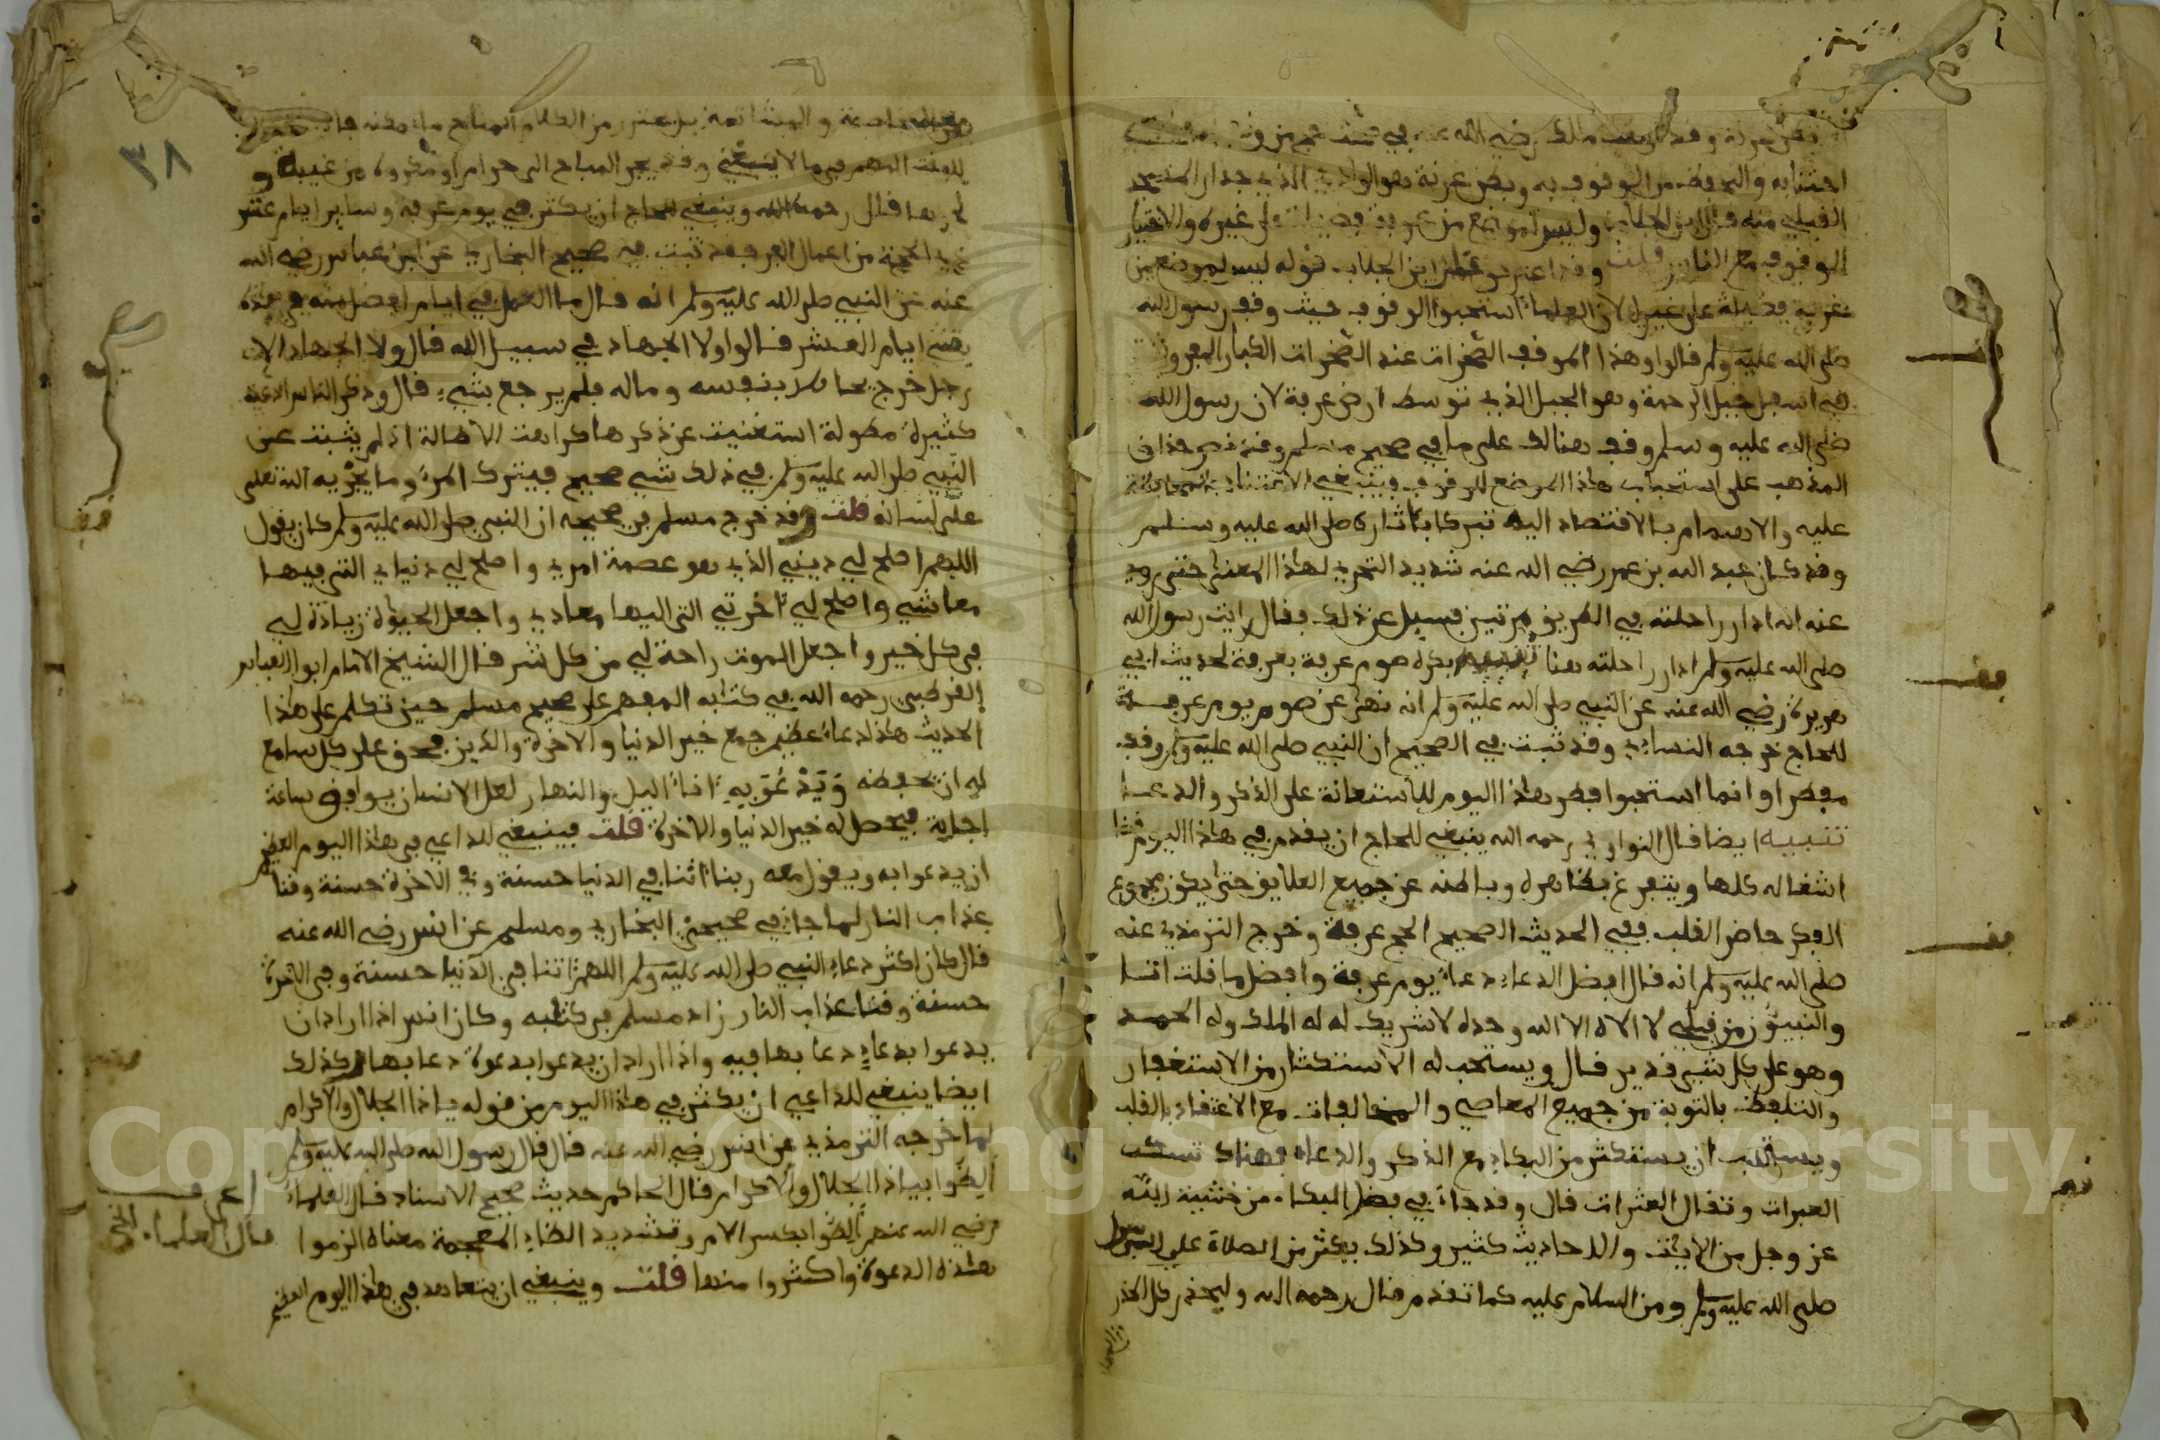 اجتنابه والتحفظ من الوقوف به وبطن عرنة هو الوادي الذي جدار المسجد
القبلي منه قال ابن الجلاب وليس لموضع من عرفة فضيلة على غيره والاختيار
الوقوف مع الناس قلت وقد اعترض على ابن الجلاب قوله ليس لموضع من
عرفة فضيلة على غيره لان العلماء استحبوا الوقوف حيث وقف رسول الله
صلى الله عليه وسلم قالوا وهذا الموقف الصخرات عند الصخرات الكبار المفروشة
في اسفل جبل الرحمة وهو الجبل الذي توسط ارض عرفة لان رسول الله
صلى الله عليه وسلم وقف هنالك على ما في صحيح مسلم وقد نص حذاق
المذهب على استحباب هذا الموضع للوقوف وينبغي الاعتناء
عليه والاهتمام بالاقتصاد اليه تبركا بآثاره صلى الله عليه وسلم
وقد كان عبد الله بن عمر رضي الله عنه شديد التحري لهذا المعنى حتى روي
عنه انه ادار راحلته في الطريق مرتين فسيل عن ذلك فقال رايت رسول الله
صلى الله عليه وسلم ادار راحلته هنا تنبيه يكره صوم عرفة بعرفة لحديث ابي
هريرة رضي الله عنه عن النبي صلى الله عليه وسلم انه نهى عن صوم يوم عرفة
للحاج خرجه النساءي وقد ثبت في الصحيح ان النبي صلى الله عليه وسلم وقف
مفطرا وانما استحبوا فطر هذا اليوم للاستعانة على الذكر والدعا
تنبيه ايضا قال النواوي رحمه الله ينبغي للحاج ان يقدم في هذا اليوم قضا
اشغاله كلها ويتفرغ بظاهره وباطنه عن جميع العلايق حتى يكون مجموع
الفكر حاضر القلب ففي الحديث الصحيح الحج عرفة وخرج الترمذي عنه
صلى الله عليه وسلم انه قال افضل الدعاء دعاء يوم عرفة وافضل ما قلت انا
والنبيون من قبلي لا اله الا الله وحده لا شريك له له الملك وله الحمد
وهو على كل شيء قدير قال ويستحب له الاستكثار من الاستغفار
والتلفظ بالتوبة من جميع المعاصي والمخالفات مع الاعتقاد بالقلب
ان يستكثر من البكاء مع الذكر والدعاء فهناك تسكب
العبرات وتقال العثرات قال وقد جاء في فضل البكاء من خشية الله
عز وجل من الاحاديث كثير وكذلك يكثر من الصلاة على رسول
صلى الله عليه وسلم ومن السلام عليه كما تقدم قال رحمه الله وليحذر كل الحذر
٣٨
من المخاصمة والمشاتمة بل يحترز من الكلام المباح ما امكنه فانه تضييع
للوقت المهم فيما لا ينبغي وقد يجر المباح الى حرام او مكروه من غيبة و
نحوها قال رحمه الله وينبغي للحاج ان يكثر في يوم عرفة وساير ايام عشر
ذي الحجة من اعمال البر فقد ثبت في صحيح البخاري عن ابن عباس رضي الله
عنه عن النبي صلى الله عليه وسلم انه قال ما العمل في ايام افضل منه في هذه
يعني ايام العشر قالوا ولا الجهاد في سبيل الله قال ولا الجهاد الا
رجل خرج يخاطر بنفسه وماله فلم يرجع بشيء قال وذكر الناس ادعية
كثيرة مطولة استغنيت عن ذكرها كراهت الاطالة اذ لم يثبت عن
النبي صلى الله عليه وسلم في ذلك شيء صحيح فيترك المرء وما يجريه الله تعلى
على لسانه قلت وقد خرج مسلم في صحيحه ان النبي صلى الله عليه وسلم كان يقول
اللهم اصلح لي ديني الذي هو عصمة امري واصلح لي دنياي التي فيها
معاشي واصلح لي اخرتي التي اليها معادي واجعل الحيوة زيادة لي
في كل خير واجعل الموت راحة لي من كل شر قال الشيخ الامام ابو العباس
القرطبي رحمه الله في كتابه المفهم على صحيح مسلم حين تكلم على هذا
الحديث هذا دعاء عظيم جمع خير الدنيا والاخرة والدين فحق على كل سامع
له ان يحفظه ويدعو به اناء اليل والنهار لعل الانسان يوافق ساعة
اجابة فيحصل له خير الدنيا والاخرة قلت فينبغي للداعي في هذا اليوم العظيم
ان يدعوا به ويقول معه ربنا اتنا في الدنيا حسنة وفي الاخرة حسنة وقنا
عذاب النار لما جاء في صحيحي البخاري ومسلم عن انس رضي الله عنه
قال كان اكثر دعاء النبي صلى الله عليه وسلم اللهم اتنا في الدنيا حسنة وفي الاخرة
حسنة وقنا عذاب النار زاد مسلم في كتابه وكان انس اذا اراد ان
يدعوا بدعاء دعا بها فيه واذا اراد ان يدعوا بدعوة دعا بها وكذلك
ايضا ينبغي للداعي ان يكثر في هذا اليوم من قوله يا ذا الجلال والاكرام
لما خرجه الترمذي عن انس رضي الله عنه قال قال رسول الله صلى الله عليه وسلم
الظوا بيا ذا الجلال والاكرام قال الحاكم حديث صحيح الاسناد قال العلماء
رضي الله عنهم الظوا بكسر اللام وتشديد الظاء المعجمة معناه الزموا
هذه الدعوة واكثروا منها قلت وينبغي ان يتعاهد في هذا اليوم العظيم
قال العلماء الخ
Copyright © King Saud University